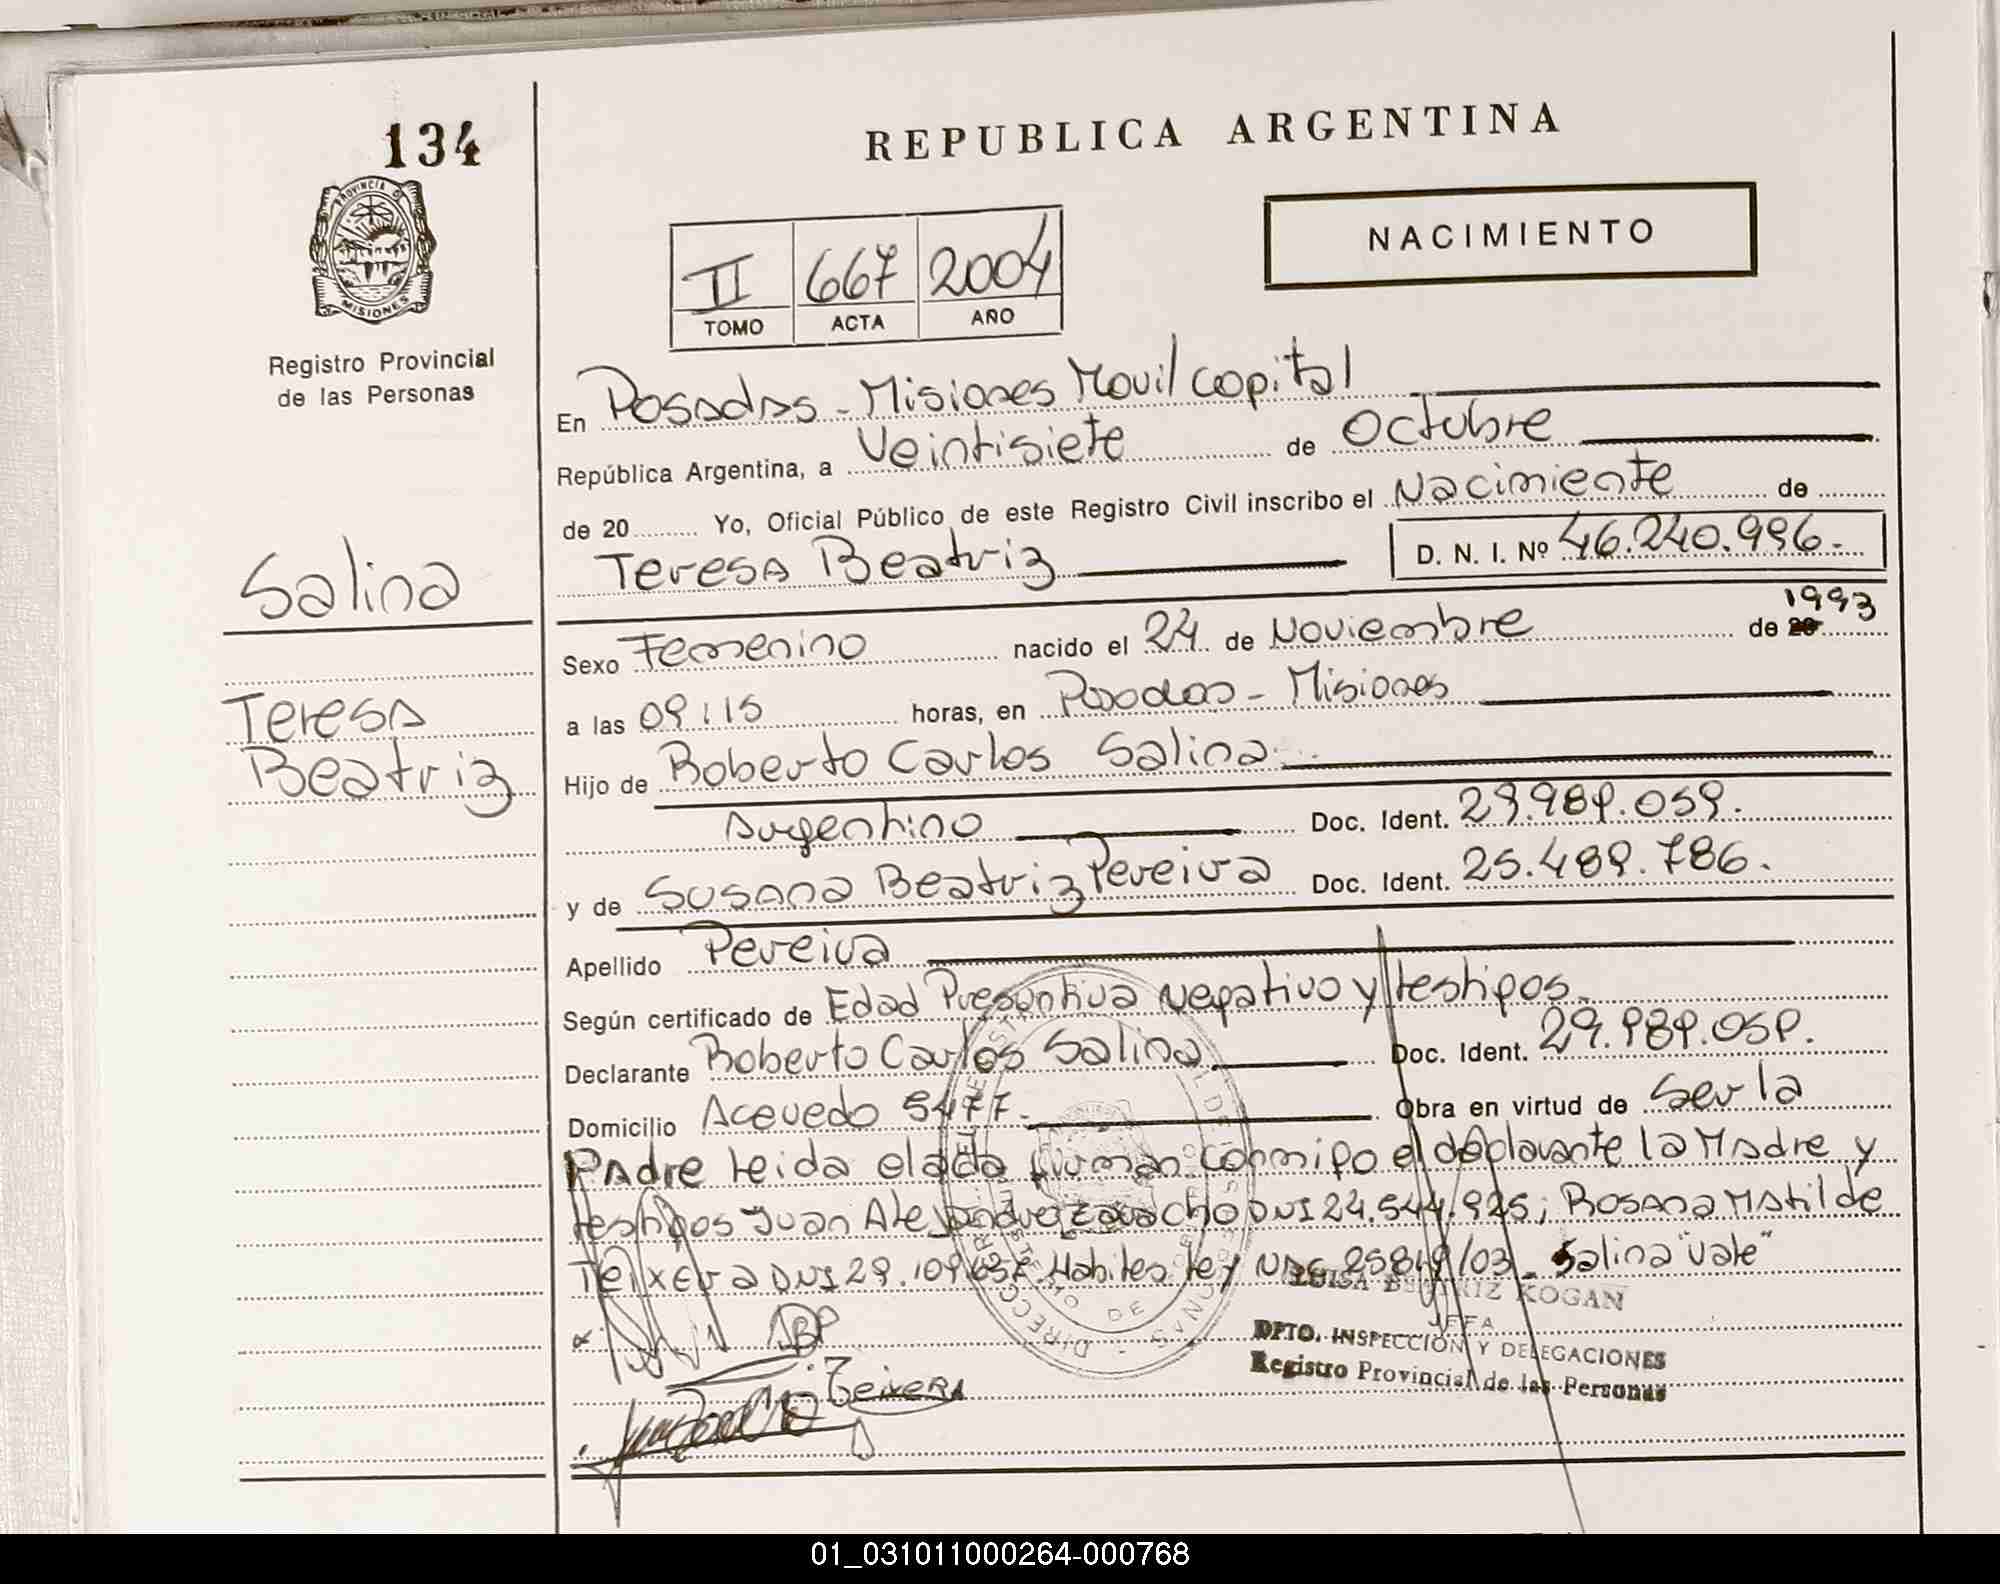 134
REPUBLICA ARGENTINA
PROVINCIA DE
MISIONES
NACIMIENTO
II 667 2004
TOMO ACTA AÑO
Registro Provincial
de las Personas
En Posadas - Misiones Movil Capital
República Argentina, a Veintisiete de Octubre
de 20 Yo, Oficial Público de este Registro Civil inscribo el Nacimiente de
Teresa Beatriz D. N. I. Nº 46.240.996.
Salina
Teresa
Beatriz
Sexo Femenino nacido el 24 de Noviembre de 1993
a las 09:15 horas, en Posadas - Misiones
Hijo de Roberto Carlos Salina
Argentino Doc. Ident. 29.989.059.
y de Susana Beatriz Pereira Doc. Ident. 25.489.786.
Apellido Pereira
Según certificado de Edad Presuntiva Negativo y testigos.
Declarante Roberto Carlos Salina Doc. Ident. 29.989.059.
Domicilio Acevedo 5477. Obra en virtud de Ser la
Padre leida el acta firman conmigo el declarante la Madre y
testigos Juan Alejandro DNI 24.544.925; Rosana Matilde
Teixera DNI 29.109.637 Habiles ley Nac 25819/03 - Salina "Vale"
LUISA BEATRIZ KOGAN
JEFA
DPTO. INSPECCIÓN Y DELEGACIONES
Registro Provincial de las Personas
Teixera
01_031011000264-000768